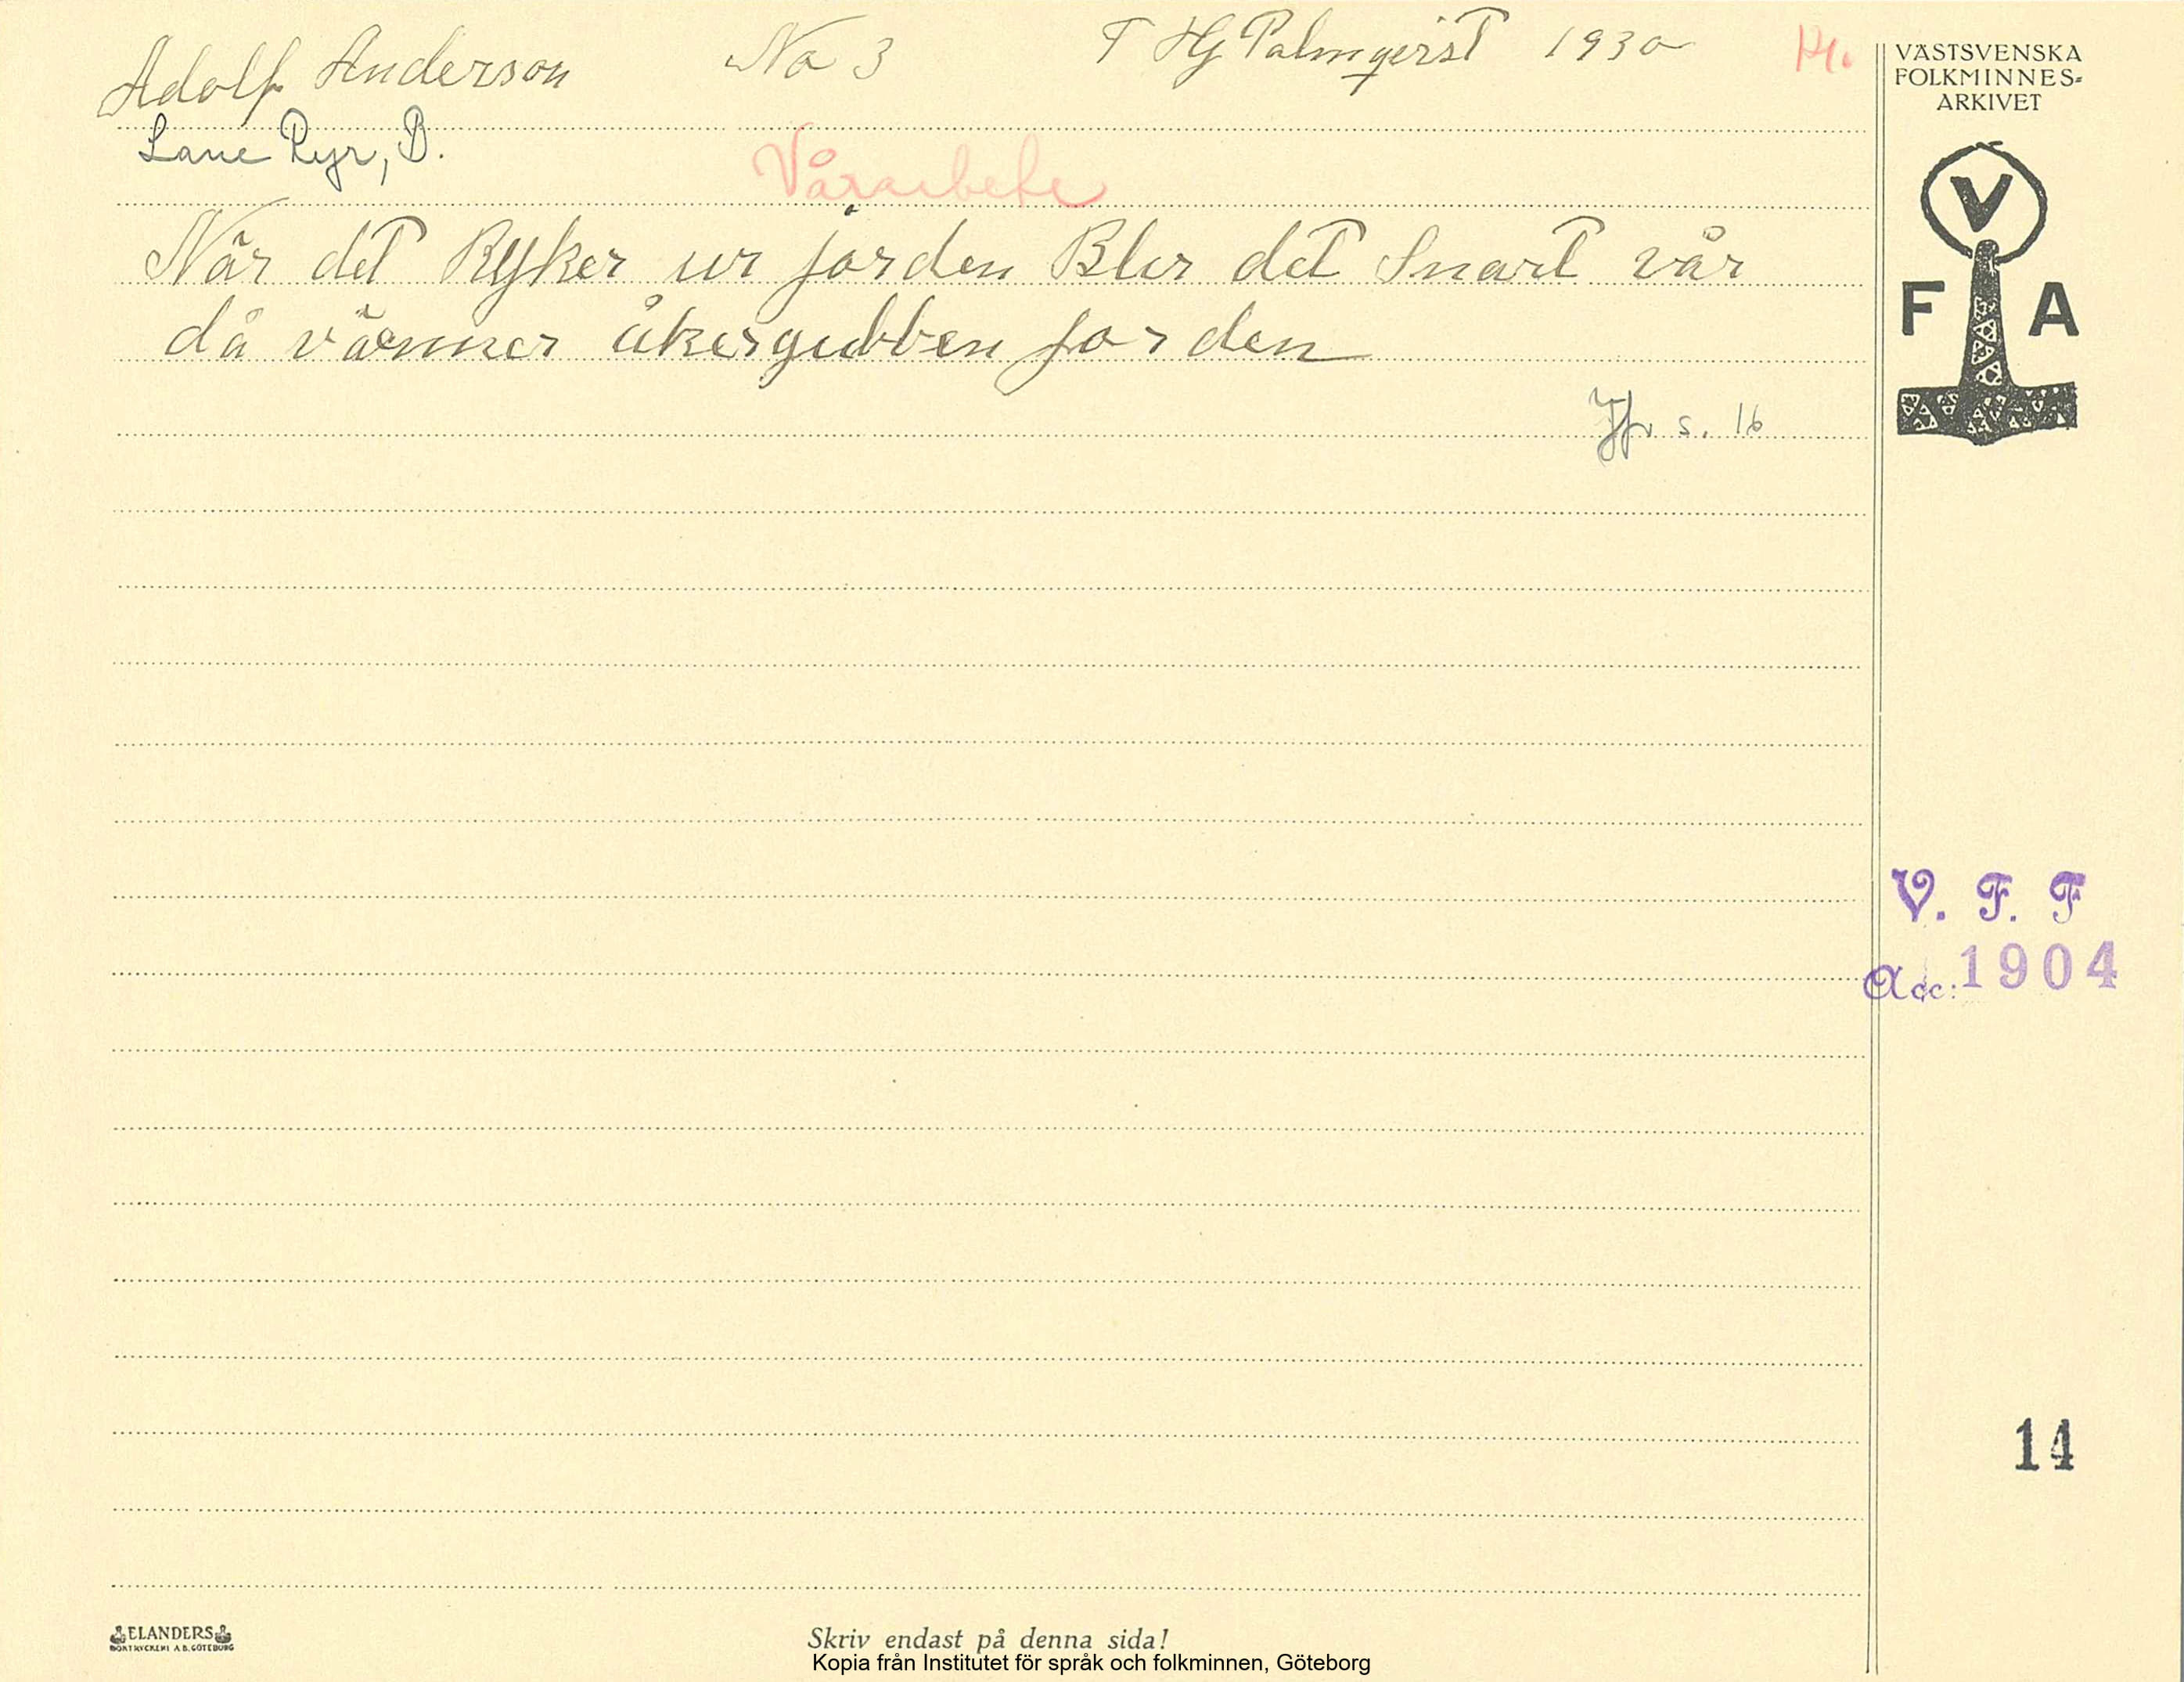 Adolf Anderson No 3 T HG Palmqvist 1930 14.
Lane Ryr, B.
Vårarbete
När det Ryker ur jorden Blir det Snart vår
då värmer åkergubben jorden
Jfr s. 16
VÄSTSVENSKA
FOLKMINNES-
ARKIVET
V
F A
V. F. F
Acc: 1904
14
ELANDERS
BOKTRYCKERI A.B. GÖTEBORG
Skriv endast på denna sida!
Kopia från Institutet för språk och folkminnen, Göteborg